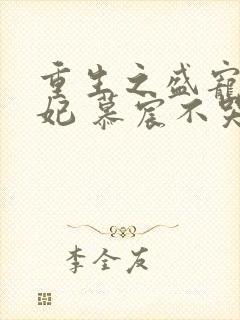 重生之盛宠
妃 慕宸不哭
李全友